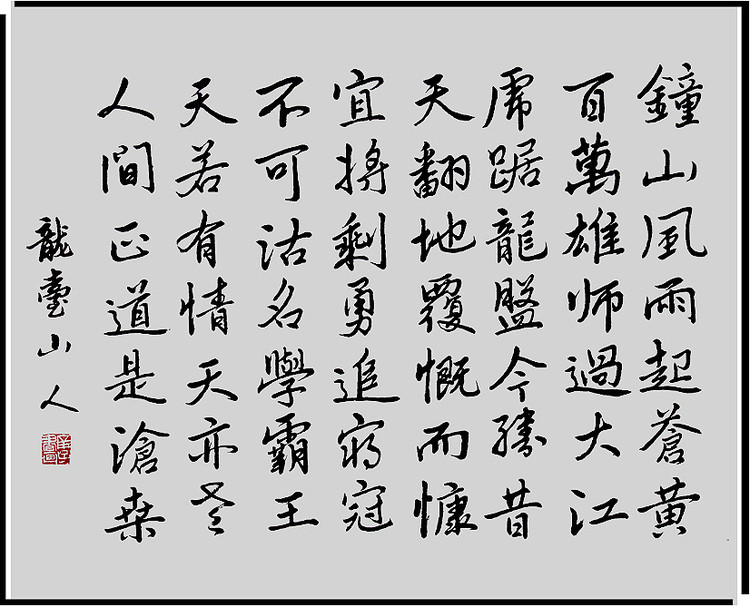 鐘山風雨起蒼黃
百萬雄师過大江
虎踞龍盤今勝昔
天翻地覆慨而慷
宜將剩勇追窮寇
不可沽名學霸王
天若有情天亦老
人間正道是滄桑
龍臺山人